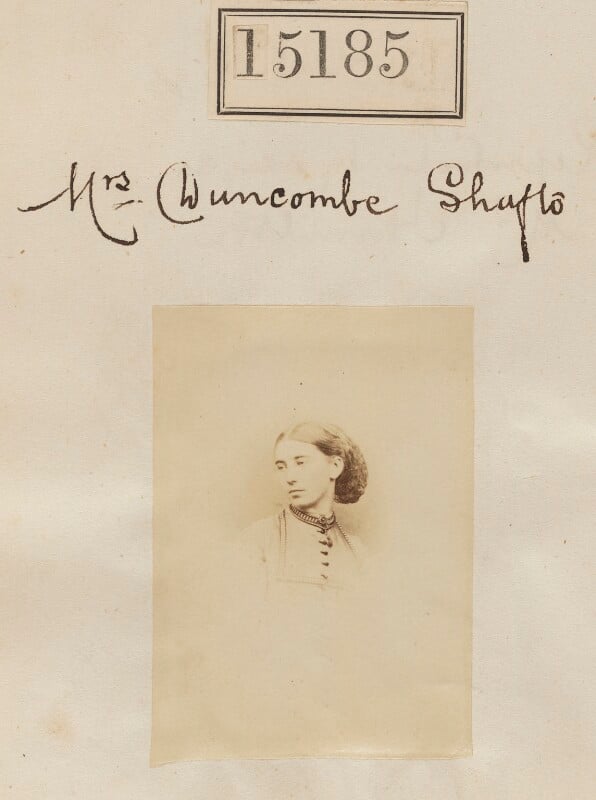 15185
Mrs. Duncombe Shafto